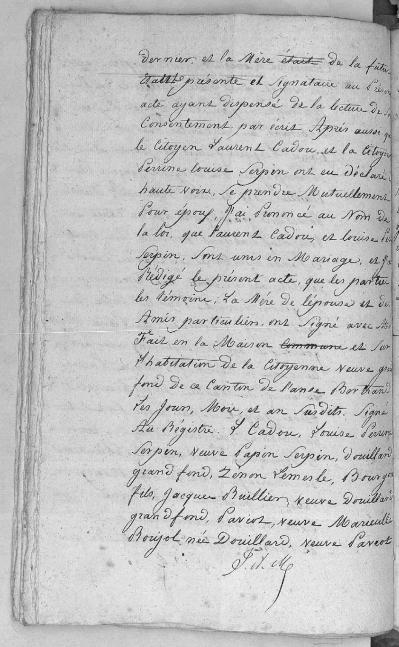 dernier, et la Mère était de la futur
était présente et signataire au Prése
acte ayant dispensé de la lecture de
Consentement par écrit Après aussi que
le Citoyen Laurent Cadou, et la Citoyen
Perrine Louise Serpin ont eu déclaré
haute voix, se prendre Mutuellement
Pour époux, J'ai Prononcé au Nom de
la loi, que Laurent Cadou, et Louise Per
Serpin, sont unis en Mariage, et J'ai
Rédigé le présent acte, que les partie
les témoins, la Mère de l'épouse et de
Amis particuliers, ont Signé avec
Fait en la Maison Commune et sur
l'habitation de la Citoyenne veuve gran
fond de ce Canton de l'anse Bertrand
les Jour, Mois, et an Susdits. Signé
Au Registre. L Cadou, Louise Perrine
Serpin, veuve Papin Serpin, douillard
grandfond, Zénon Lemerle, Bourge
fils, Jacques Buillier, veuve douillard
grandfond, Paviot, veuve
Boujol née Douillard, veuve Paviot